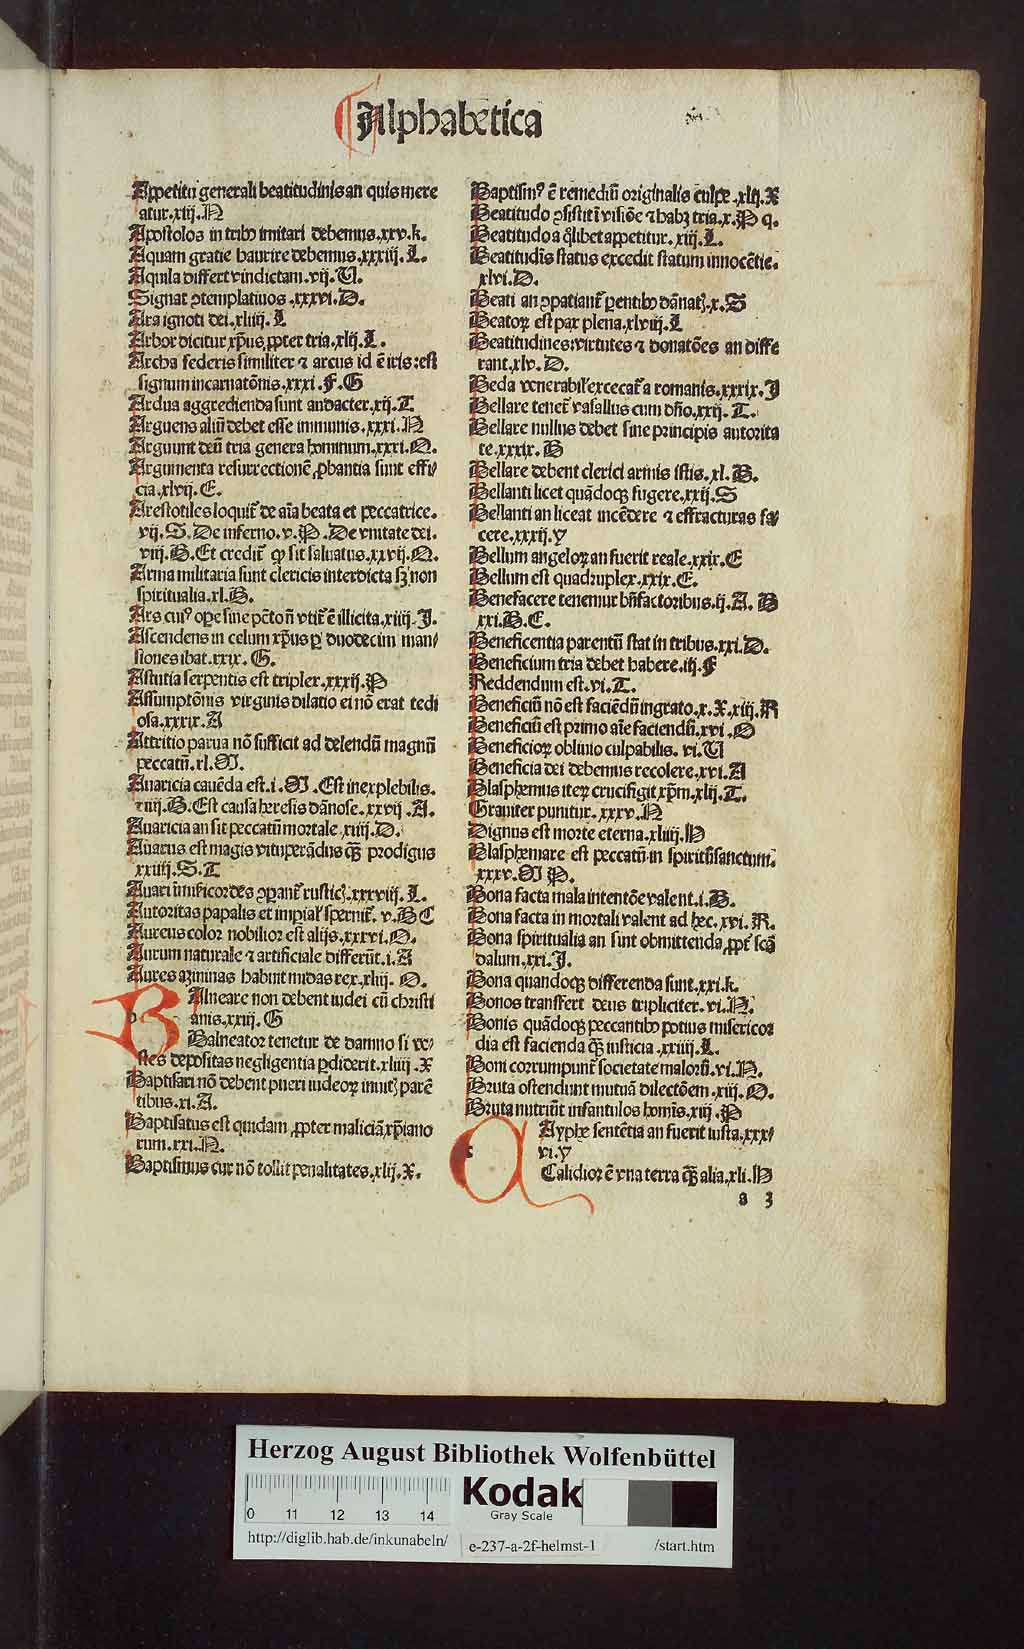 Alphabetica
Appetitu generali beatitudinis an quis mere
atur.xiij.N
Apostolos in tribꝰ imitari debemus.xxv.k.
Aquam gratie haurire debemus.xxxiij.L.
Aquila differt vindictam.vij.U.
Signat ꝯtemplatiuos.xxxvi.D.
Ara ignoti dei.xliiij.L
Arbor dicitur xp̄us ꝓpter tria.xlij.L.
Archa federis similiter ⁊ arcus id ē iris:est
signum incarnatōnis.xxxi.F.G
Ardua aggredienda sunt audacter.xij.T
Arguens aliū debet esse immunis.xxxi.N
Arguunt deū tria genera hominum.xxxi.O.
Argumenta resurrectionē ꝓbantia sunt effi⸗
cia.xlvij.E.
Arestotiles loquit̄ de aīa beata et peccatrice.
vij.S.De inferno.v.P.De vnitate dei.
viij.B.Et credit̄ ꝙ sit saluatus.xxvij.O.
Arma militaria sunt clericis interdicta sꝫ non
spiritualia.xl.B.
Ars cuiꝰ oꝑe sine pctō nō vtit̄ ē illicita.xiiij.J.
Ascendens in celum xp̄us ꝑ duodecim man⸗
siones ibat.xxix.G.
Astutia serpentis est tripler.xxxij.P
Assumptōnis virginis dilatio ei nō erat tedi
osa.xxxix.A
Attritio parua nō sufficit ad delendū magnū
peccatū.xl.M.
Auaricia cauēda est.i.M.Est inexplebilis.
⁊ iiij.B.Est causa heresis dānose.xxvij.A.
Auaricia an sit peccatū mortale.xiiij.D.
Auarus est magis vituperādus ꝙ̄ prodigus
xxiiij.S.T
Auari īmisericordes ꝯparant̄ rusticꝭ.xxxviij.L.
Autoritas papalis et imꝑial' spernit̄.v.B C
Aureus color nobilior est alijs.xxxvi.O.
Aurum naturale ⁊ artificiale differūt.i.A
Aures azininas habuit midas rex.xliij.O.
Balneare non debent iudei cū christi
anis.xxiij.G
Balneator tenetur de damno si ve⸗
stes depositas negligentia ꝑdiderit.xliiij.X
Baptisari nō debent pueri iudeoꝝ inuitꝭ parē
tibus.xi.A.
Baptisatus est quidam ꝓpter maliciā xp̄iano
rum.xxi.N.
Baptismus cur nō tollit penalitates.xlij.X.
Baptismꝰ ē remediū originalis culpe.xlij.X
Beatitudo ꝯsistit ī visiōe ⁊ habꝫ tria.x.P q.
Beatitudo a qͦlibet appetitur.xiij.L.
Beatitudīs status excedit statum innocētie.
xlvi.D.
Beati an ꝯpatiant̄ ꝑentibꝰ dānatꝭ.x.S
Beatoꝝ est pax plena.xlviij.L
Beatitudines:virtutes ⁊ donatōes an diffe
rant.xlv.D.
Beda venerabil' excecat̄ a romanis.xxxix.J
Bellare tenet̄ vasallus cum dn̄o.xxij.T.
Bellare nullus debet sine principis autorita
te.xxxix.B
Bellare debent clerici armis istis.xl.B.
Bellanti licet quādoqꝫ fugere.xxij.S
Bellanti an liceat incēdere ⁊ effracturas fa⸗
cere.xxxij.y
Bellum angeloꝝ an fuerit reale.xxix.E
Bellum est quadruplex.xxix.E.
Benefacere tenemur bn̄factoribus.ij.A.B
xxi.B.C.
Beneficentia parentū stat in tribus.xxi.D.
Beneficium tria debet habere.iij.F
Reddendum est.vi.T.
Beneficiū nō est faciēdū ingrato.x.X.xiij.R
Beneficiū est primo aīe faciendū.xvi.O
Beneficioꝝ obliuio culpabilis.vi.U
Beneficia dei debemus recolere.xvi.A
Blasphemus iteꝝ crucifigit xp̄m.xlij.T.
Grauiter punitur.xxxv.N
Dignus est morte eterna.xliiij.N
Blasphemare est peccatū in spiritū sanctum.
xxxv.M P.
Bona facta mala intentōe valent.i.B.
Bona facta in mortali valent ad hec.xvi.R.
Bona spiritualia an sint obmittenda ꝓpt̄ scā
dalum.xxi.J.
Bona quandoqꝫ differenda sunt.xxi.k.
Bonos transfert deus tripliciter.vi.N.
Bonis quādoqꝫ peccantibꝰ potius misericor
dia est facienda ꝙ̄ iusticia.xxiiij.L.
Boni corrumpunt̄ societate maloꝝ.vi.N.
Bruta ostendunt mutuā dilectōem.xiij.O.
Bruta nutriūt infantulos homīs.xiij.P
Cayphe sentētia an fuerit iusta.xxx⸗
vi.y
Calidior ē vna terra ꝙ̄ alia.xli.N
a 3
Herzog August Bibliothek Wolfenbüttel
0 11 12 13 14
Kodak
Gray Scale
http://diglib.hab.de/inkunabeln/ e-237-a-2f-helmst-1 /start.htm